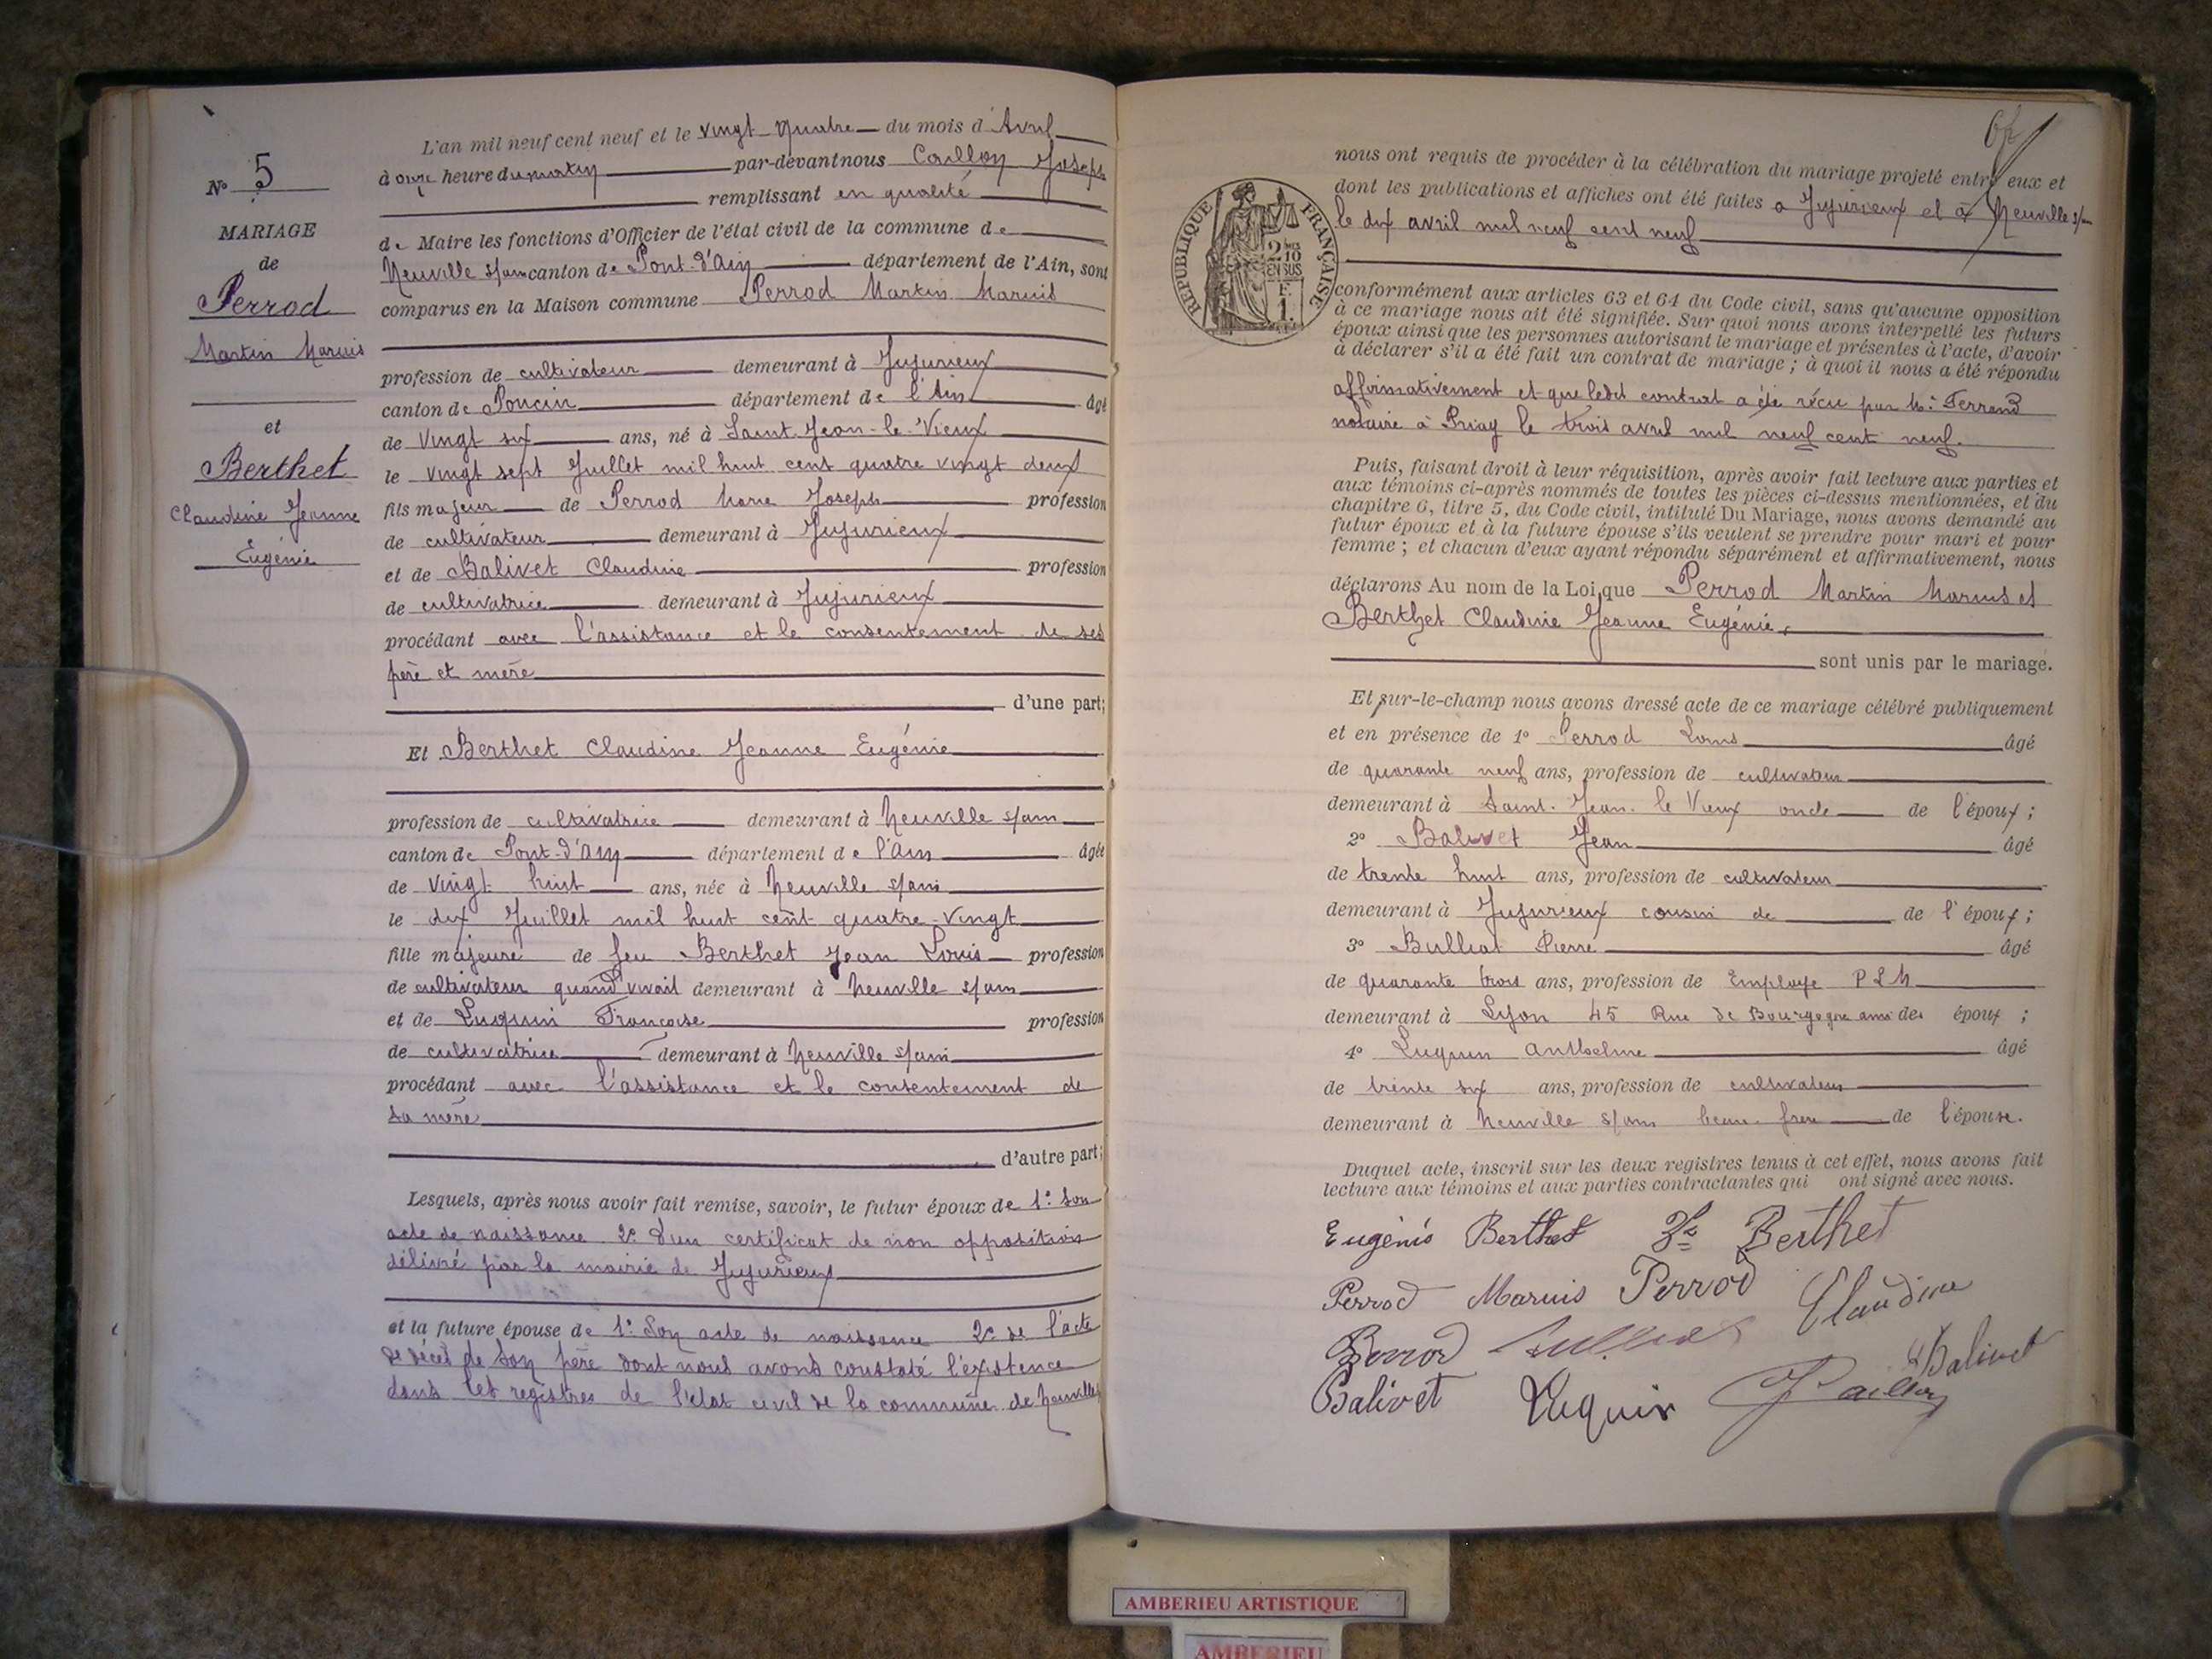 N° 5
MARIAGE
de
Perrod
Martin Marius
et
Berthet
Claudine Jeanne
Eugénie
L'an mil neuf cent neuf et le vingt-quatre du mois d'Avril
à onze heure du matin par-devant nous Caillon Joseph
remplissant en qualité
de Maire les fonctions d'Officier de l'état civil de la commune de
Neuville s/ain canton de Pont-d'Ain département de l'Ain, sont
comparus en la Maison commune Perrod Martin Marius
profession de cultivateur demeurant à Jujurieux
canton de Poncin département de l'Ain âgé
de vingt six ans, né à Saint-Jean-le-Vieux
le vingt sept Juillet mil huit cent quatre vingt deux
fils majeur de Perrod Marie Joseph profession
de cultivateur demeurant à Jujurieux
et de Balivet Claudine profession
de cultivatrice demeurant à Jujurieux
procédant avec l'assistance et le consentement de ses
père et mère
d'une part;
Et Berthet Claudine Jeanne Eugénie
profession de cultivatrice demeurant à Neuville s/ain
canton de Pont-d'Ain département de l'Ain âgée
de vingt huit ans, née à Neuville s/ain
le dix Juillet mil huit cent quatre-vingt
fille majeure de feu Berthet Jean Louis profession
de cultivateur quand vivait demeurant à Neuville s/ain
et de Luquin Françoise profession
de cultivatrice demeurant à Neuville s/ain
procédant avec l'assistance et le consentement de
sa mère
d'autre part;
Lesquels, après nous avoir fait remise, savoir, le futur époux de 1° Son
acte de naissance 2° d'un certificat de non opposition
délivré par la mairie de Jujurieux
et la future épouse de 1° Son acte de naissance 2° de l'acte
de décès de son père dont nous avons constaté l'existence
dans les registres de l'état civil de la commune de Neuville
RÉPUBLIQUE FRANÇAISE
2/10
EN SUS
F.
1.
nous ont requis de procéder à la célébration du mariage projeté entre eux et
dont les publications et affiches ont été faites à Jujurieux et à Neuville s/ain
le dix avril mil neuf cent neuf
conformément aux articles 63 et 64 du Code civil, sans qu'aucune opposition
à ce mariage nous ait été signifiée. Sur quoi nous avons interpellé les futurs
époux ainsi que les personnes autorisant le mariage et présentes à l'acte, d'avoir
à déclarer s'il a été fait un contrat de mariage ; à quoi il nous a été répondu
affirmativement et que ledit contrat a été reçu par Me Ferrand
notaire à Priay le trois avril mil neuf cent neuf.
Puis, faisant droit à leur réquisition, après avoir fait lecture aux parties et
aux témoins ci-après nommés de toutes les pièces ci-dessus mentionnées, et du
chapitre 6, titre 5, du Code civil, intitulé Du Mariage, nous avons demandé au
futur époux et à la future épouse s'ils veulent se prendre pour mari et pour
femme ; et chacun d'eux ayant répondu séparément et affirmativement, nous
déclarons Au nom de la Loi que Perrod Martin Marius et
Berthet Claudine Jeanne Eugénie,
sont unis par le mariage.
Et sur-le-champ nous avons dressé acte de ce mariage célébré publiquement
et en présence de 1° Perrod Louis âgé
de quarante neuf ans, profession de cultivateur
demeurant à Saint-Jean-le Vieux oncle de l'époux ;
2° Balivet Jean âgé
de trente huit ans, profession de cultivateur
demeurant à Jujurieux cousin de de l'époux ;
3° Bulliat Pierre âgé
de quarante trois ans, profession de Employé PLM
demeurant à Lyon 45 Rue de Bourgogne ami des époux ;
4° Luquin Anthelme âgé
de trente six ans, profession de cultivateur
demeurant à Neuville s/ain beau-frère de l'épouse.
Duquel acte, inscrit sur les deux registres tenus à cet effet, nous avons fait
lecture aux témoins et aux parties contractantes qui ont signé avec nous.
Eugénie Berthet Ve Berthet
Perrod Marius Perrod Claudine
Perrod Balivet
Balivet Luquin J Caillon
AMBERIEU ARTISTIQUE
AMBERIEU